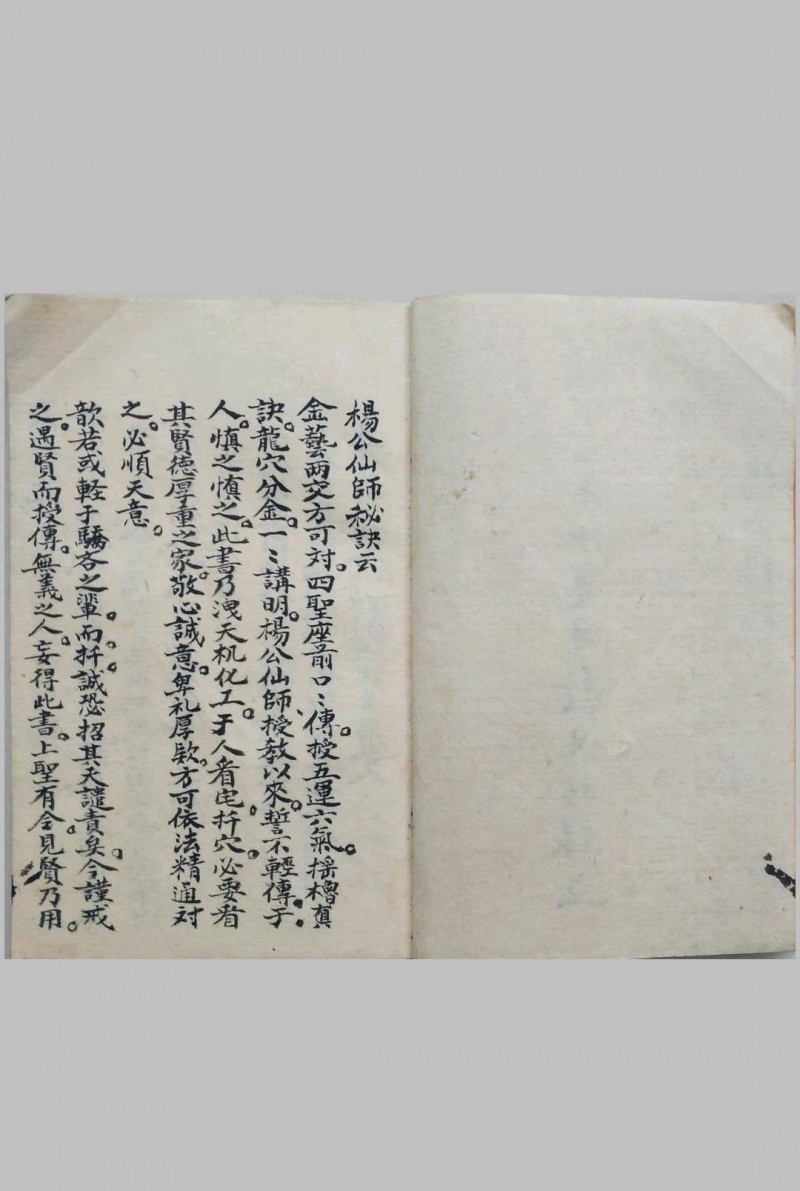 楊公仙師秘訣云
金藝兩交方可対。四聖座前口〻傳。授五運六氣。摇櫓真
訣。龍穴分金。一〻講明。楊公仙師、授教以來。誓不輕傳。于
人。慎之慎之。此書乃洩天机化工。于人看宅扦穴。必要看
其賢徳厚重之家。敬心誠意。卑礼厚欵。方可依法精通対
之。必順天意。
歆若或軽于驕吝之輩。而扦。誠恐招其天譴責矣。今謹戒
之。遇賢而授傳。無義之人。妄得此書。上聖有令。見賢乃用。